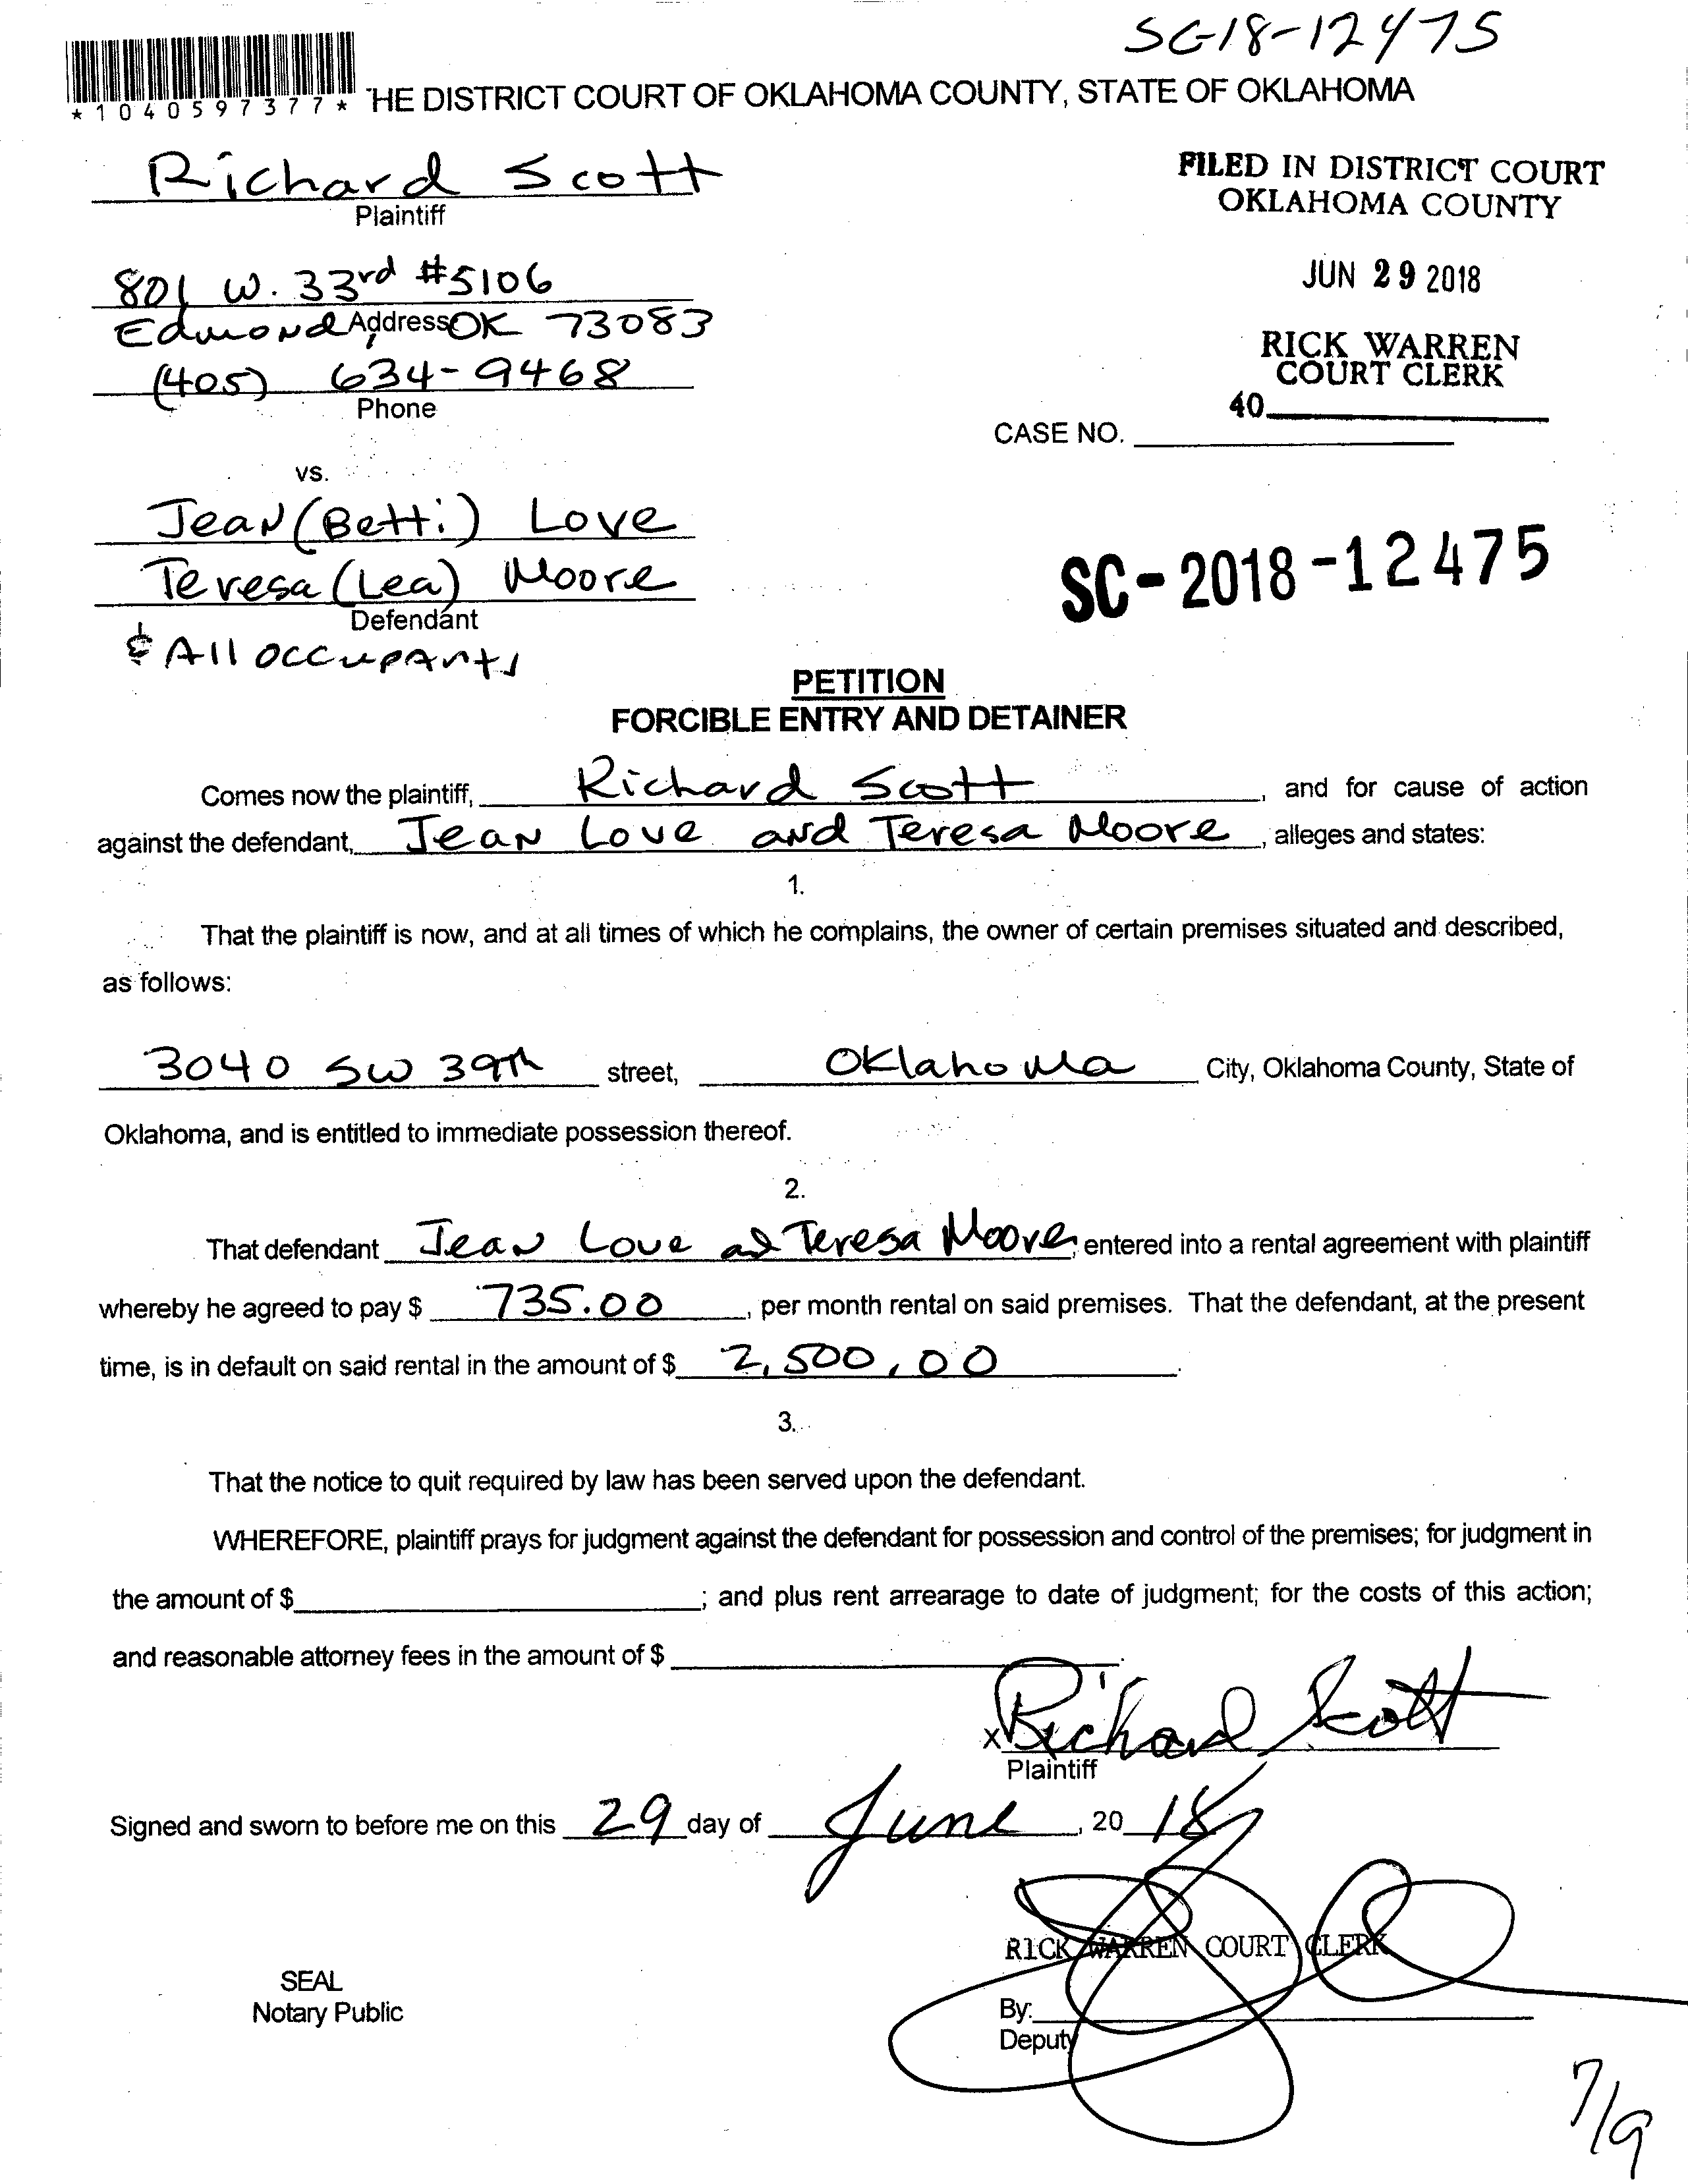 SC-18-12475
*1040597377* HE DISTRICT COURT OF OKLAHOMA COUNTY, STATE OF OKLAHOMA
Richard Scott
Plaintiff
FILED IN DISTRICT COURT
OKLAHOMA COUNTY
JUN 29 2018
RICK WARREN
COURT CLERK
40
801 W. 33rd #5106
Address
Edmond, OK 73083
(405) 634-9468
Phone
CASE NO.
vs.
Jean (Betti) Love
Teresa (Lea) Moore
Defendant
& All occupants
SC-2018-12475
PETITION
FORCIBLE ENTRY AND DETAINER
Comes now the plaintiff, Richard Scott, and for cause of action
against the defendant, Jean Love and Teresa Moore, alleges and states:
1.
That the plaintiff is now, and at all times of which he complains, the owner of certain premises situated and described,
as follows:
3040 SW 39th street, Oklahoma City, Oklahoma County, State of
Oklahoma, and is entitled to immediate possession thereof.
2.
That defendant Jean Love ad Teresa Moore, entered into a rental agreement with plaintiff
whereby he agreed to pay $ 735.00, per month rental on said premises. That the defendant, at the present
time, is in default on said rental in the amount of $ 2,500.00.
3.
That the notice to quit required by law has been served upon the defendant.
WHEREFORE, plaintiff prays for judgment against the defendant for possession and control of the premises; for judgment in
the amount of $ ; and plus rent arrearage to date of judgment; for the costs of this action;
and reasonable attorney fees in the amount of $ .
X Richard Scott
Plaintiff
Signed and sworn to before me on this 29 day of June, 20 18
RICK WARREN COURT CLERK
SEAL
Notary Public
By:
Deputy
7/9